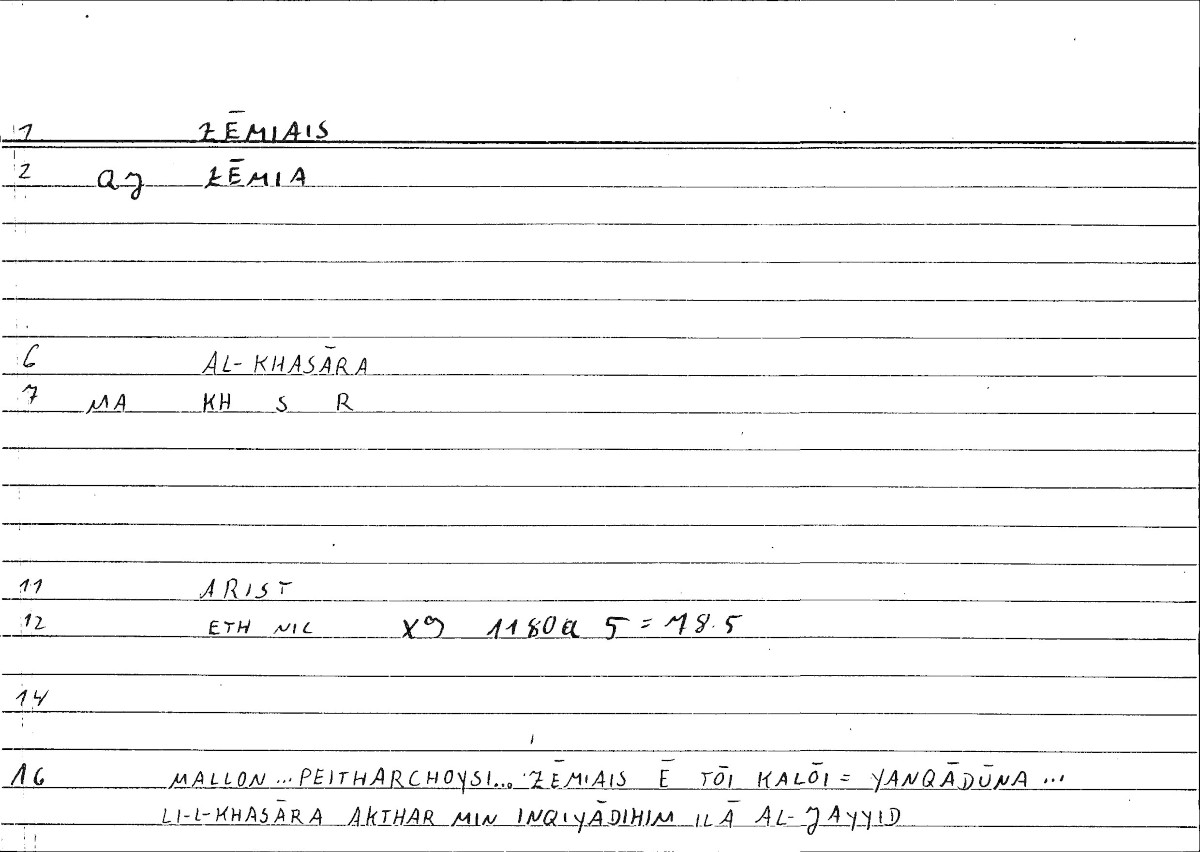 1 ZĒMIAIS
2 QJ ZĒMIA
6 AL-KHASĀRA
7 MA KH S R
11 ARIST
12 ETH NIC X9 1180a 5 = 78.5
14
16 MALLON ... PEITHARCHOYSI... ZĒMIAIS Ē TŌI KALŌI = YANQĀDŪNA ...
LI-L-KHASĀRA AKTHAR MIN INQIYĀDIHIM ILĀ AL-JAYYID